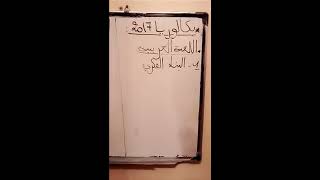 بكالوريا 2017
اللغة العربية
البناء الفكري